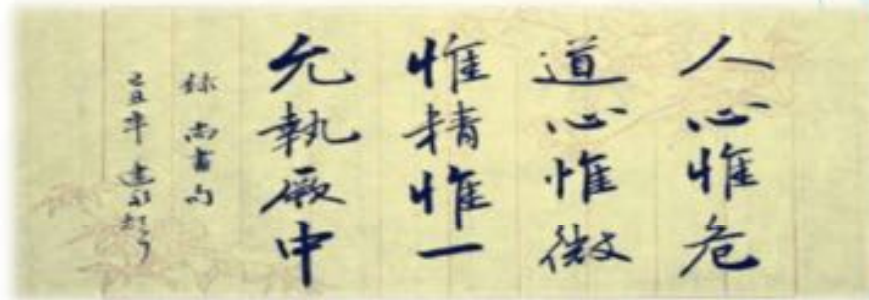 人心惟危
道心惟微
惟精惟一
允執厥中
錄尚書句
己丑年